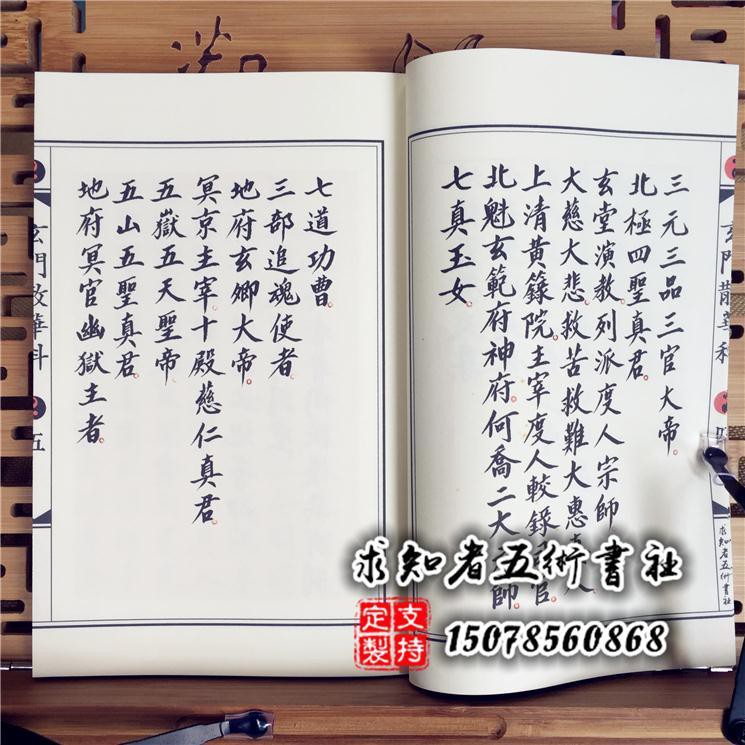 三元三品三官大帝。
北極四聖真君。
玄堂演教列派度人宗師。
大慈大悲救苦救難大惠
上清黃籙院主宰度人較錄 官。
北魁玄範府神府何喬二大 師。
七真玉女。
玄門散花科
求知者五術書社
七道功曹。
三部追魂使者。
地府玄卿大帝。
冥京主宰十殿慈仁真君。
五嶽五天聖帝
五山五聖真君。
地府冥官幽獄主者。
玄門散花科
五
求知者五術書社
支持定製
15078560868